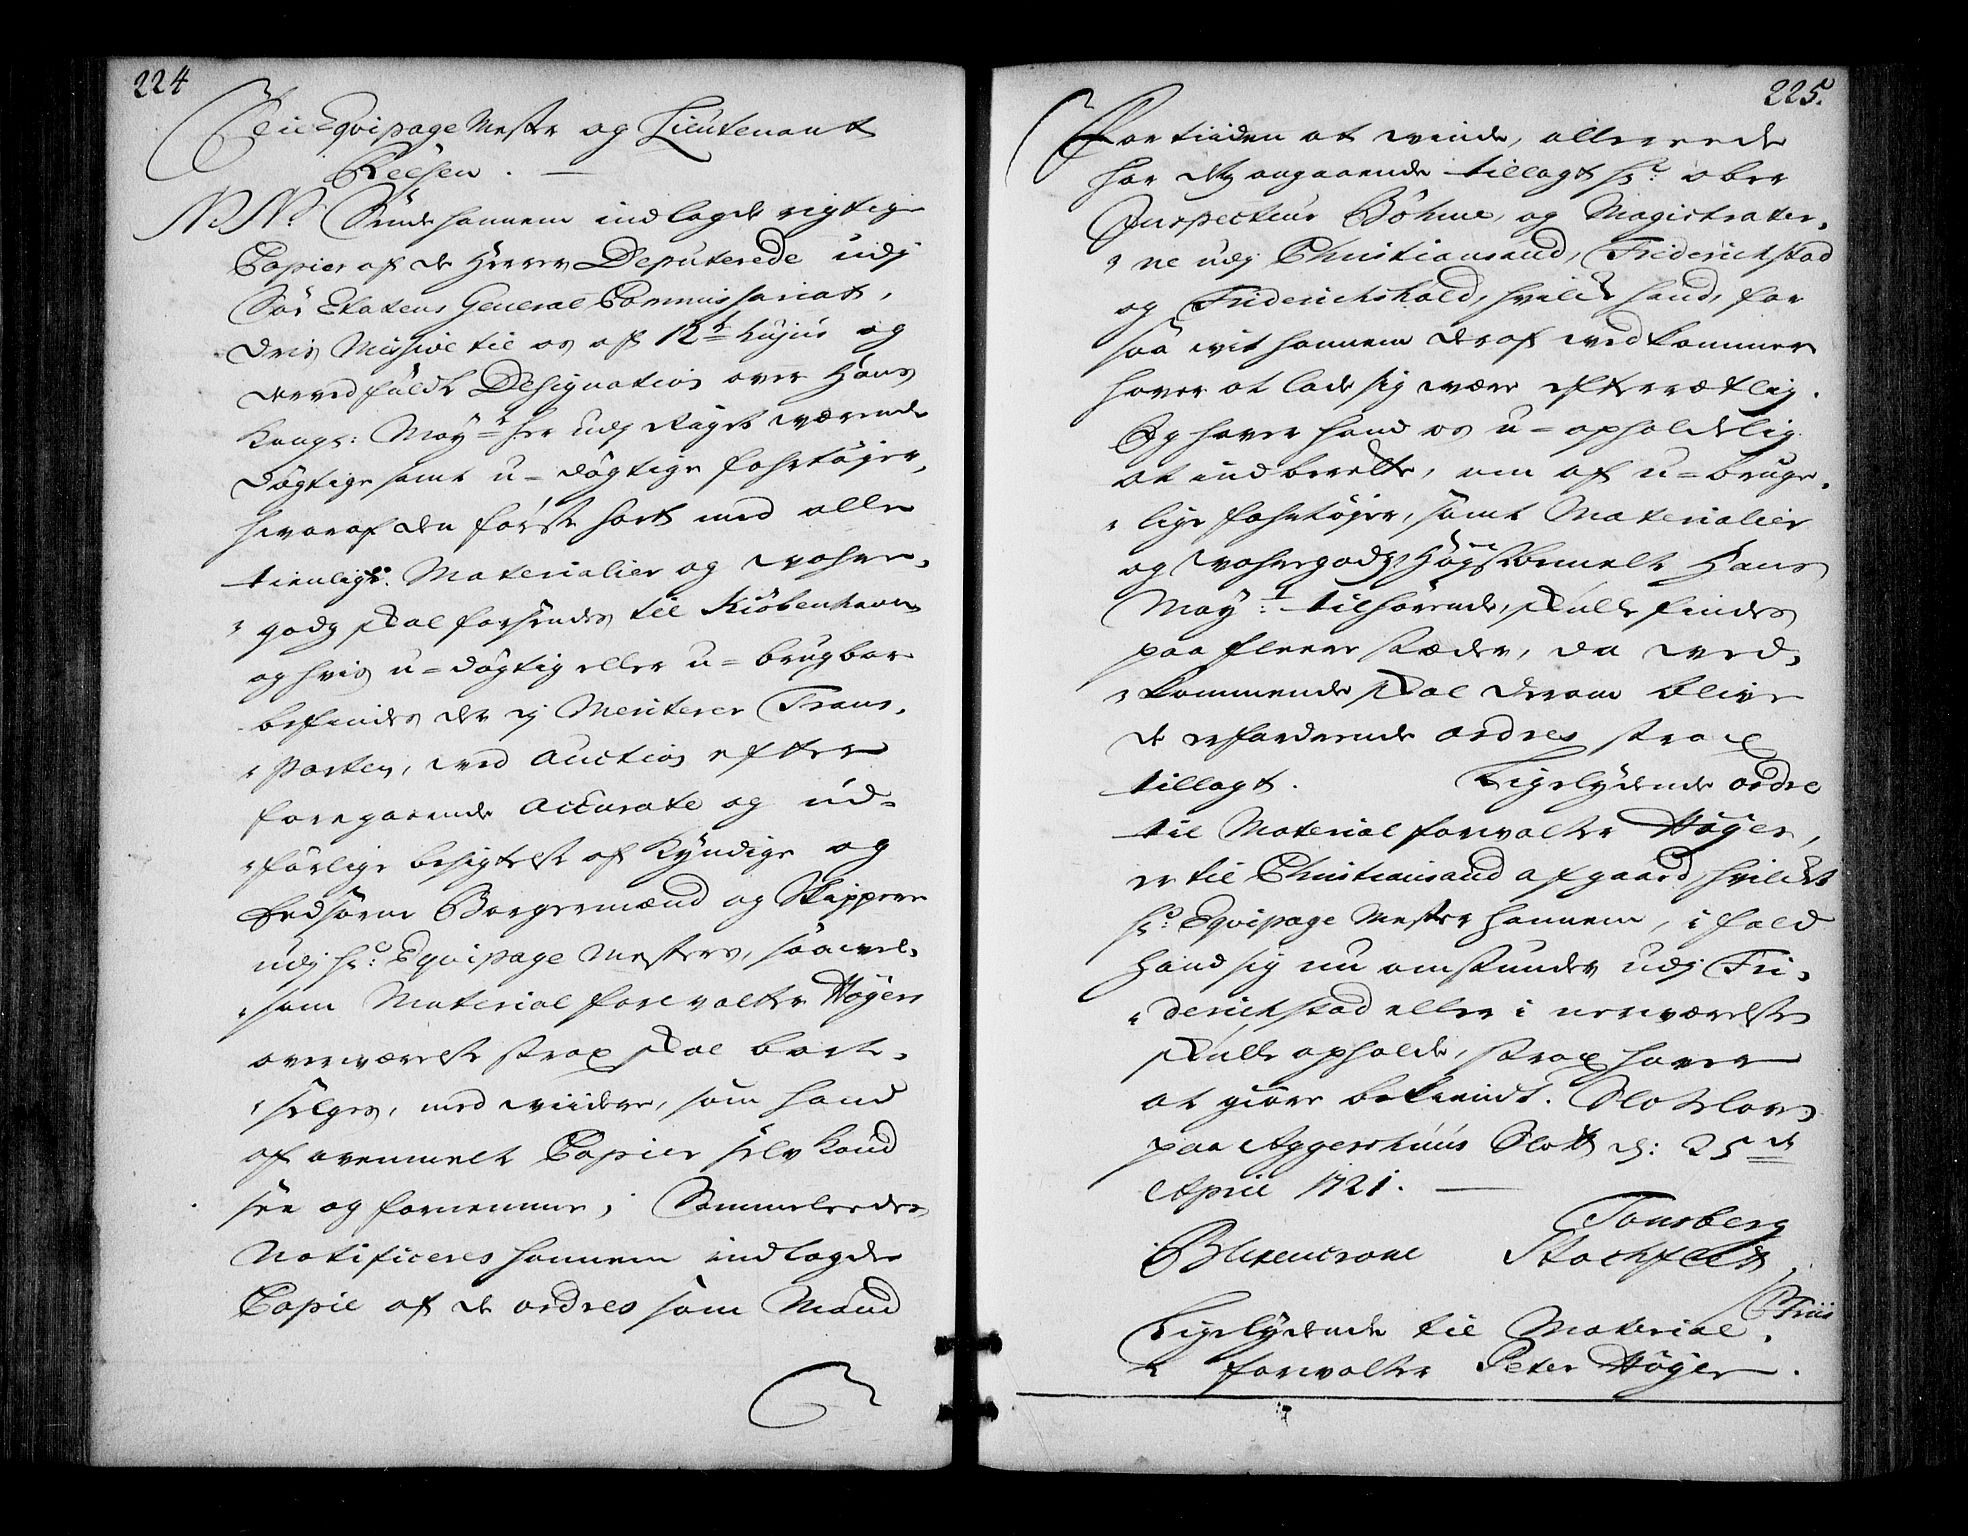 224
Til Eqvipage Mester og Lieutenant
Reesen.
N. N: Sende hannem indlagde rigtige
Copier af de Herrer Deputerede udj
Søe Etatens General Commissariat,
dris Missive til os af 12te hujus og
derved fuldte Designation over Hans
Kongl: May:ts her udj Riget værende
døgtige samt u-døgtige fahrtøjer,
hvoraf den første sort med alle
tienlige Materialier og vahre-
godz skal forsendes til Kiøbenhavn
og hvis u-døgtig eller u-brugbar
befindes der ej Meriterer Trans-
porten, ved Auction efter
foregaaende Accurate og ud-
førlige besigtelse af Kyndige og
Eedsorne Borgermænd og Skippere
udj hr: Eqvipage Mesters, saavel-
som Material forvalter Høyers
overværelse strax skal bort-
sælges, med viidere, som hand
af ovenmelte Copier selv kand
see og fornemme; Sammeleedes
Notificeres hannem indlagde
Copie af de ordres som Mand
225.
for tiiden at vinde, allereede
har des angaaende tillagt hr: ober
Inspecteur Böhme, og Magistrater-
ne udj Christiansand, Friderichstad
og Friderichshald, hvilke hand, for
saa vit hannem deraf vedkommer
haver at lade sig være efterrætlig.
Og haver hand os u-opholdelig
at indberette, om af u-bruge-
lige fahrtøjer, samt Materialier
og vahregodz Høystbemelte Hans
May:t tilhørende, skulle findes
paa fleere stæder, da ved-
kommende skal derom blive
de erfordrende ordres strax
tillagt. Ligelydende ordre
til Material forvalter Høyer,
er til Christiansand afgaaed, hvilket
hr: Eqvipage Mester hannem, i fald
hand sig nu omstunder udj Fri-
derichstad eller i nerværelse
skulle opholde, strax haver
at giøre bekiendt. Slotslov
paa Aggershuus Slott d: 25de
April 1721.
Tonsberg
Blixencrone Stochfleth
Friis
Ligelydende til Material-
forvalter Peter Høyer.